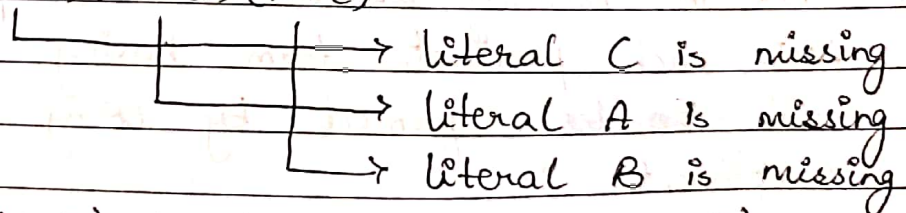 literal C is missing
literal A is missing
literal B is missing